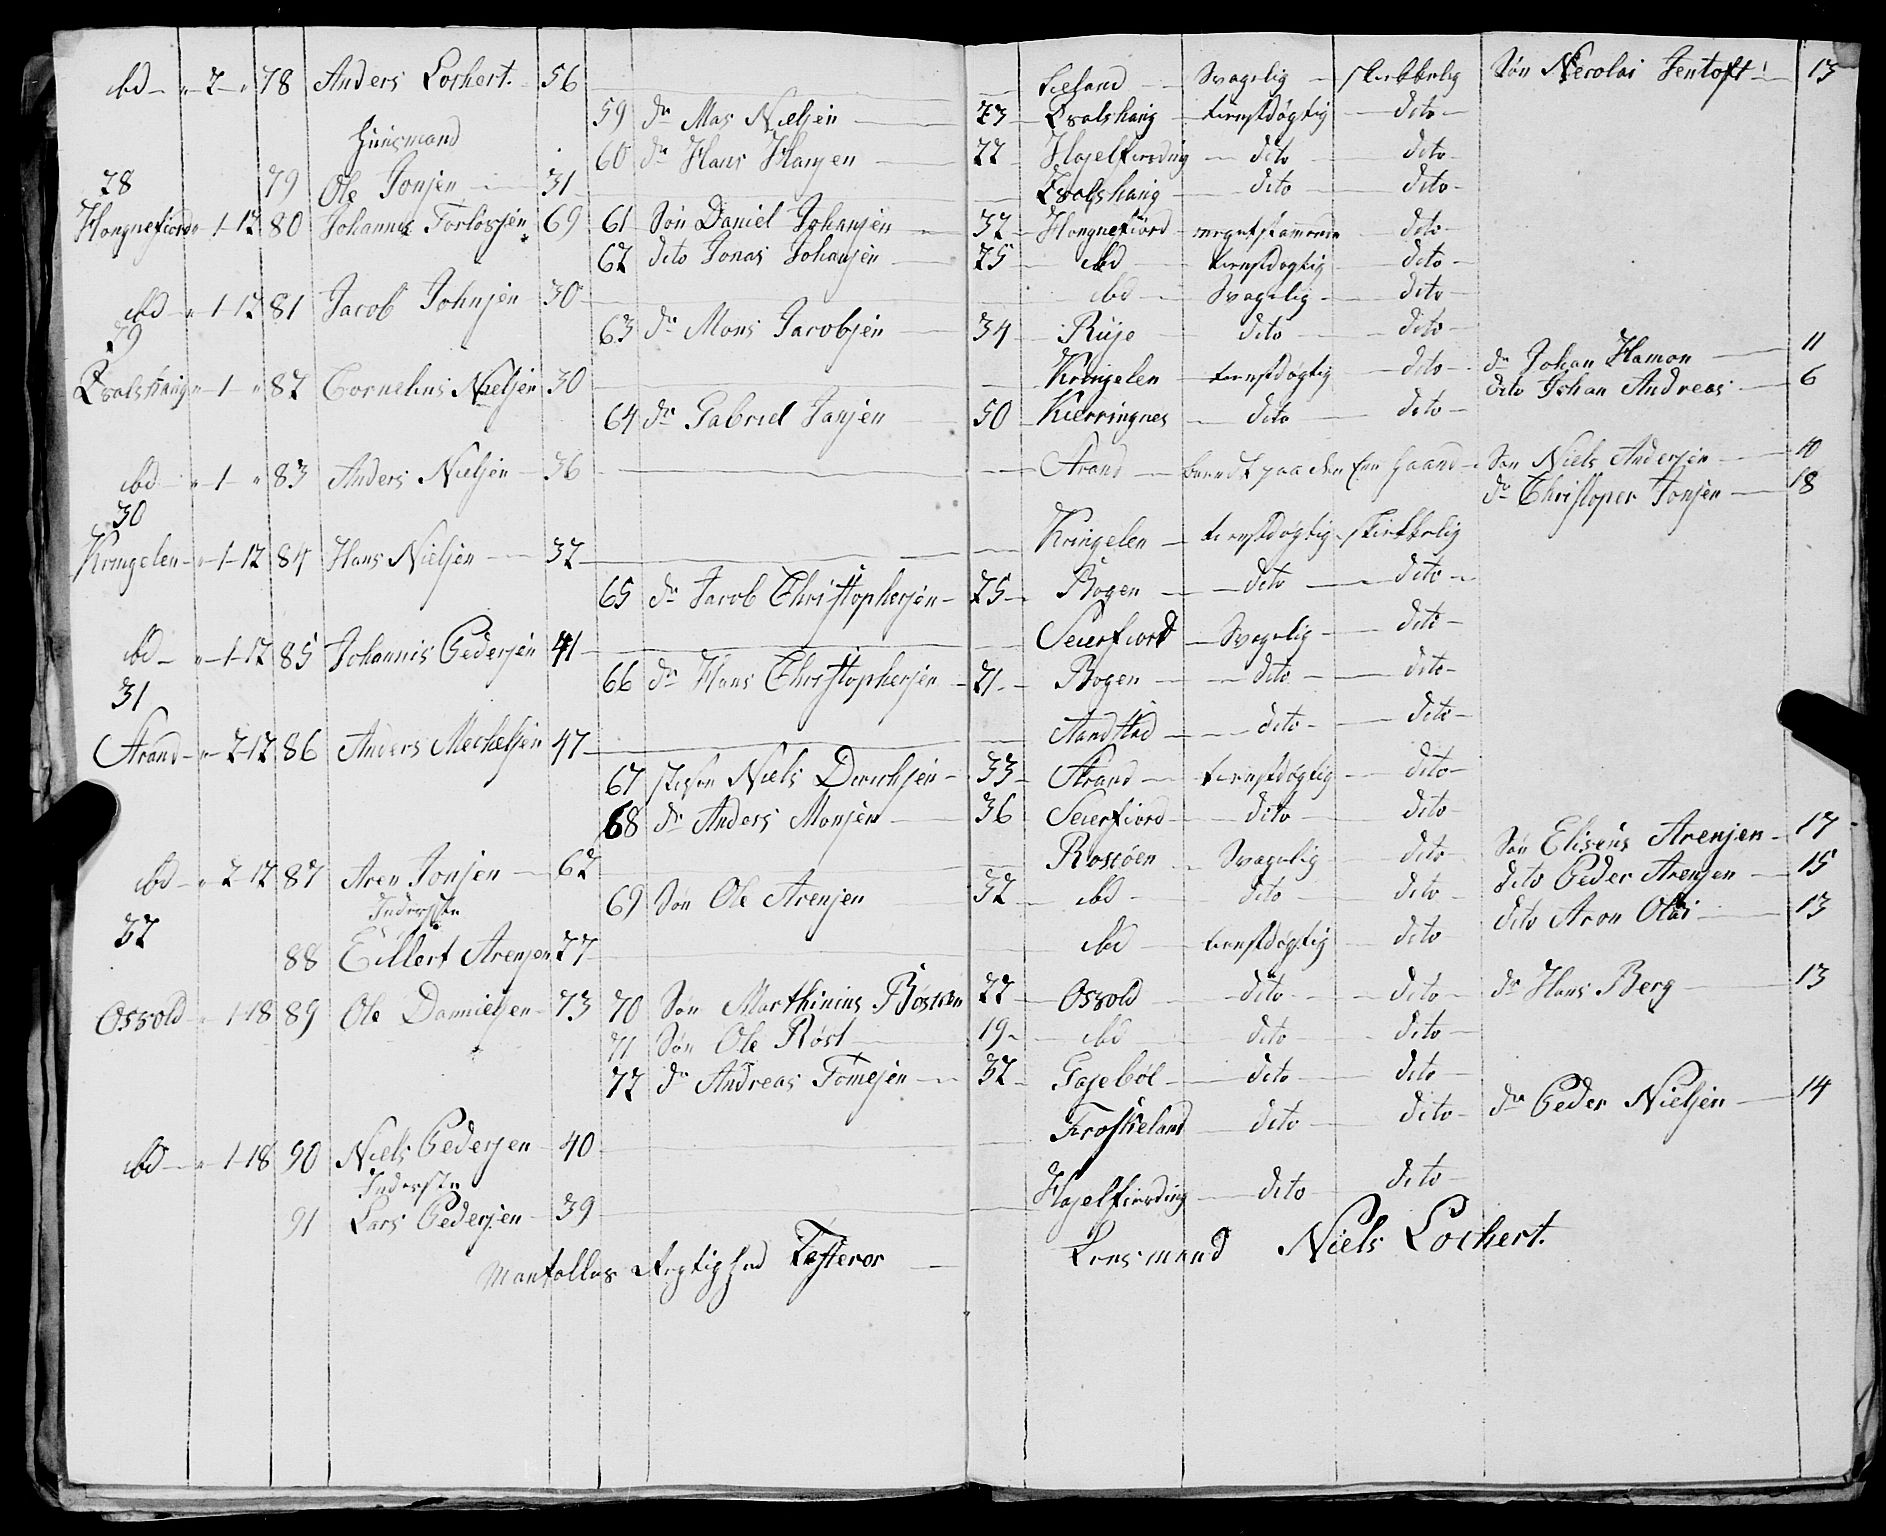 ibd - " 2 - " 78 Anders Lochert. 56 Leland Svagelig skikkelig Søn Necolai Jentoft 13
59 dr Mas Nielsen 23 Qvalshaug tienstdøgtig dito
Huusmand 60 dr Hans Hansen 22 Hasselfierding dito dito
28 79 Ole Jonsen 31 Qvalshaug dito dito
Hongnefiord " 1-12 80 Johannes Torlofsen 69 61 Søn Daniel Johansen 32 Hongnefiord dito
62 dito Jonas Johansen 25 ibd tienstdøgtig dito
ibd " 1-12 81 Jacob Johnsen 30 ibd Svagelig dito
29 63 dr Mons Jacobsen 34 Ruse dito dito
Qvalshaug " 1 " 82 Cornelius Nielsen 30 Kringelen tienstdøgtig dito dr Johan Hamon 11
dito Johan Andreas 6
64 dr Gabriel Jansen 50 Kierringnes dito dito
ibd " 1 " 83 Anders Nielsen 36 Strand brendt paa den Een Haand Søn Niels Andersen 10
30 dr Christoper Jonsen 18
Kringelen " 1-12 84 Hans Nielsen 32 Kringelen tienstdøgtig skikkelig
65 dr Jacob Christophersen 25 Bogen dito dito
ibd " 1-12 85 Johannis Pedersen 41 Seierfiord Svagelig dito
31 66 dr Hans Christophersen 21 Bogen dito dito
Strand " 2-12 86 Anders Mechelsen 47 Sandstad dito dito
67 stesøn Niels Derichsen 33 Strand tienstdøgtig dito
68 dr Anders Monsen 36 Seierfiord dito dito
ibd " 2-12 87 Aren Jonsen 62 Rossøen Svagelig dito Søn Eliseus Arensen 17
Inderste 69 Søn Ole Arensen 32 ibd dito dito dito Peder Arensen 15
32 88 Eillert Arensen 27 ibd tienstdøgtig dito dito Aron Olai 13
Osvold " 1-18 89 Ole Dannielsen 73 70 Søn Marthinius Røst 22 Osvold dito dito dr Hans Berg 13
71 Søn Ole Røst 19 ibd dito dito
72 dr Andreas Tomesen 32 Gasebøl dito dito
ibd " 1-18 90 Niels Pedersen 40 Froskeland dito dito dr Peder Nielsen 14
Inderste
91 Lars Pedersen 39 Hasselfierding dito dito
Mantallets Rigtighed Testerer Lensmand Niels Lochert.